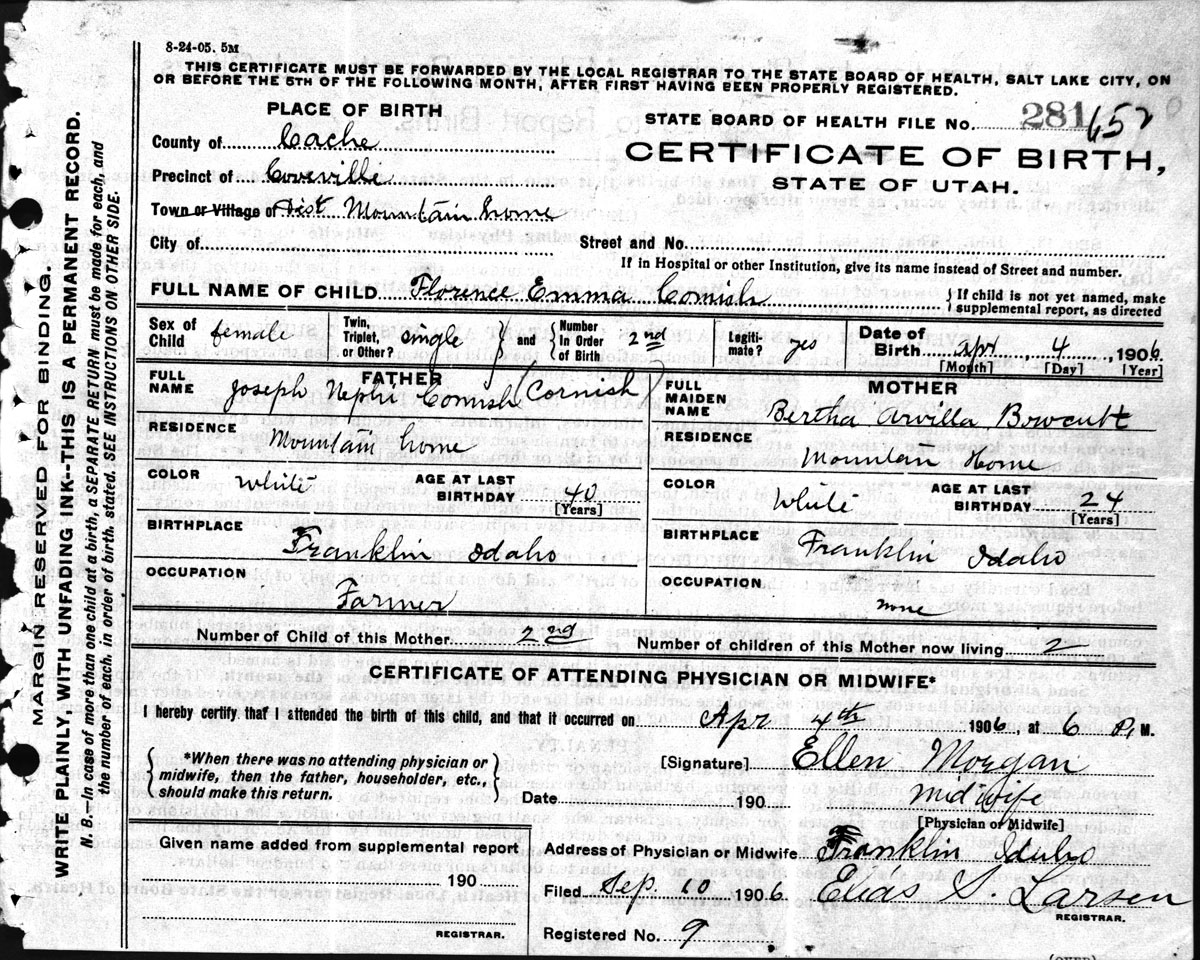 8-24-05. 5M
THIS CERTIFICATE MUST BE FORWARDED BY THE LOCAL REGISTRAR TO THE STATE BOARD OF HEALTH, SALT LAKE CITY, ON
OR BEFORE THE 5TH OF THE FOLLOWING MONTH, AFTER FIRST HAVING BEEN PROPERLY REGISTERED.
PLACE OF BIRTH
STATE BOARD OF HEALTH FILE No. 281 652
County of Cache
CERTIFICATE OF BIRTH,
Precinct of Coveville
STATE OF UTAH.
Town or Village of Dist Mountain home
City of
Street and No.
If in Hospital or other Institution, give its name instead of Street and number.
FULL NAME OF CHILD Florence Emma Cornish
{ If child is not yet named, make
supplemental report, as directed
Sex of Child female
Twin, Triplet, or Other? single
and { Number In Order of Birth 2nd
Legiti- mate? yes
Date of Birth Apr 4, 1906
[Month] [Day] [Year]
FATHER
FULL NAME Joseph Nephi Cornish (Cornish)
RESIDENCE
Mountain home
COLOR White
AGE AT LAST BIRTHDAY 40
[Years]
BIRTHPLACE
Franklin Idaho
OCCUPATION
Farmer
MOTHER
FULL MAIDEN NAME Bertha Arvilla Bowcutt
RESIDENCE
Mountain Home
COLOR White
AGE AT LAST BIRTHDAY 24
[Years]
BIRTHPLACE
Franklin Idaho
OCCUPATION
none
Number of Child of this Mother 2nd
Number of children of this Mother now living 2
CERTIFICATE OF ATTENDING PHYSICIAN OR MIDWIFE*
I hereby certify that I attended the birth of this child, and that it occurred on Apr 4th 1906, at 6 P. M.
{ *When there was no attending physician or
midwife, then the father, householder, etc.,
should make this return. }
[Signature] Ellen Morgan
Date 190
Midwife
[Physician or Midwife]
Given name added from supplemental report
190
REGISTRAR.
Address of Physician or Midwife Franklin Idaho
Filed Sep. 10 1906 Elias S. Larsen
REGISTRAR.
Registered No. 9
(OVER)
MARGIN RESERVED FOR BINDING.
WRITE PLAINLY, WITH UNFADING INK--THIS IS A PERMANENT RECORD.
N. B.—In case of more than one child at a birth, a SEPARATE RETURN must be made for each, and
the number of each, in order of birth, stated. SEE INSTRUCTIONS ON OTHER SIDE.